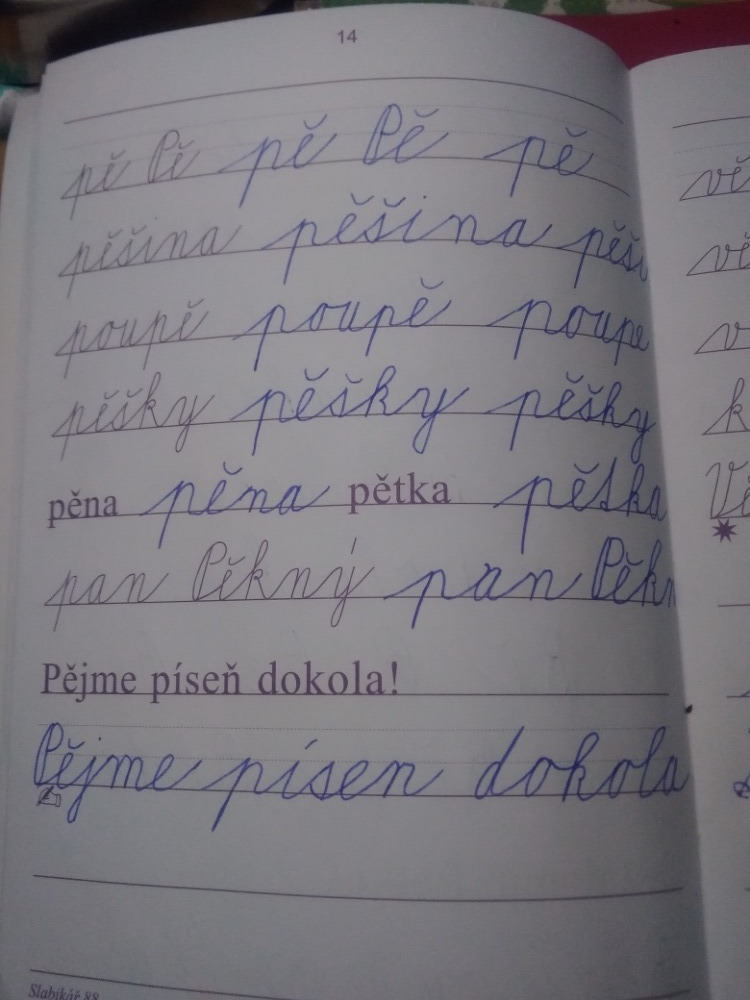 14
pě Pě pě Pě pě
pěšina pěšina pěši
poupě poupě poupe
pěšky pěšky pěšky
pěna pěna pětka pětka
pan Pěkný pan Pěkn
Pějme píseň dokola!
Pějme písen dokola
Slabikář 88
vě
vě
v
k
Vě